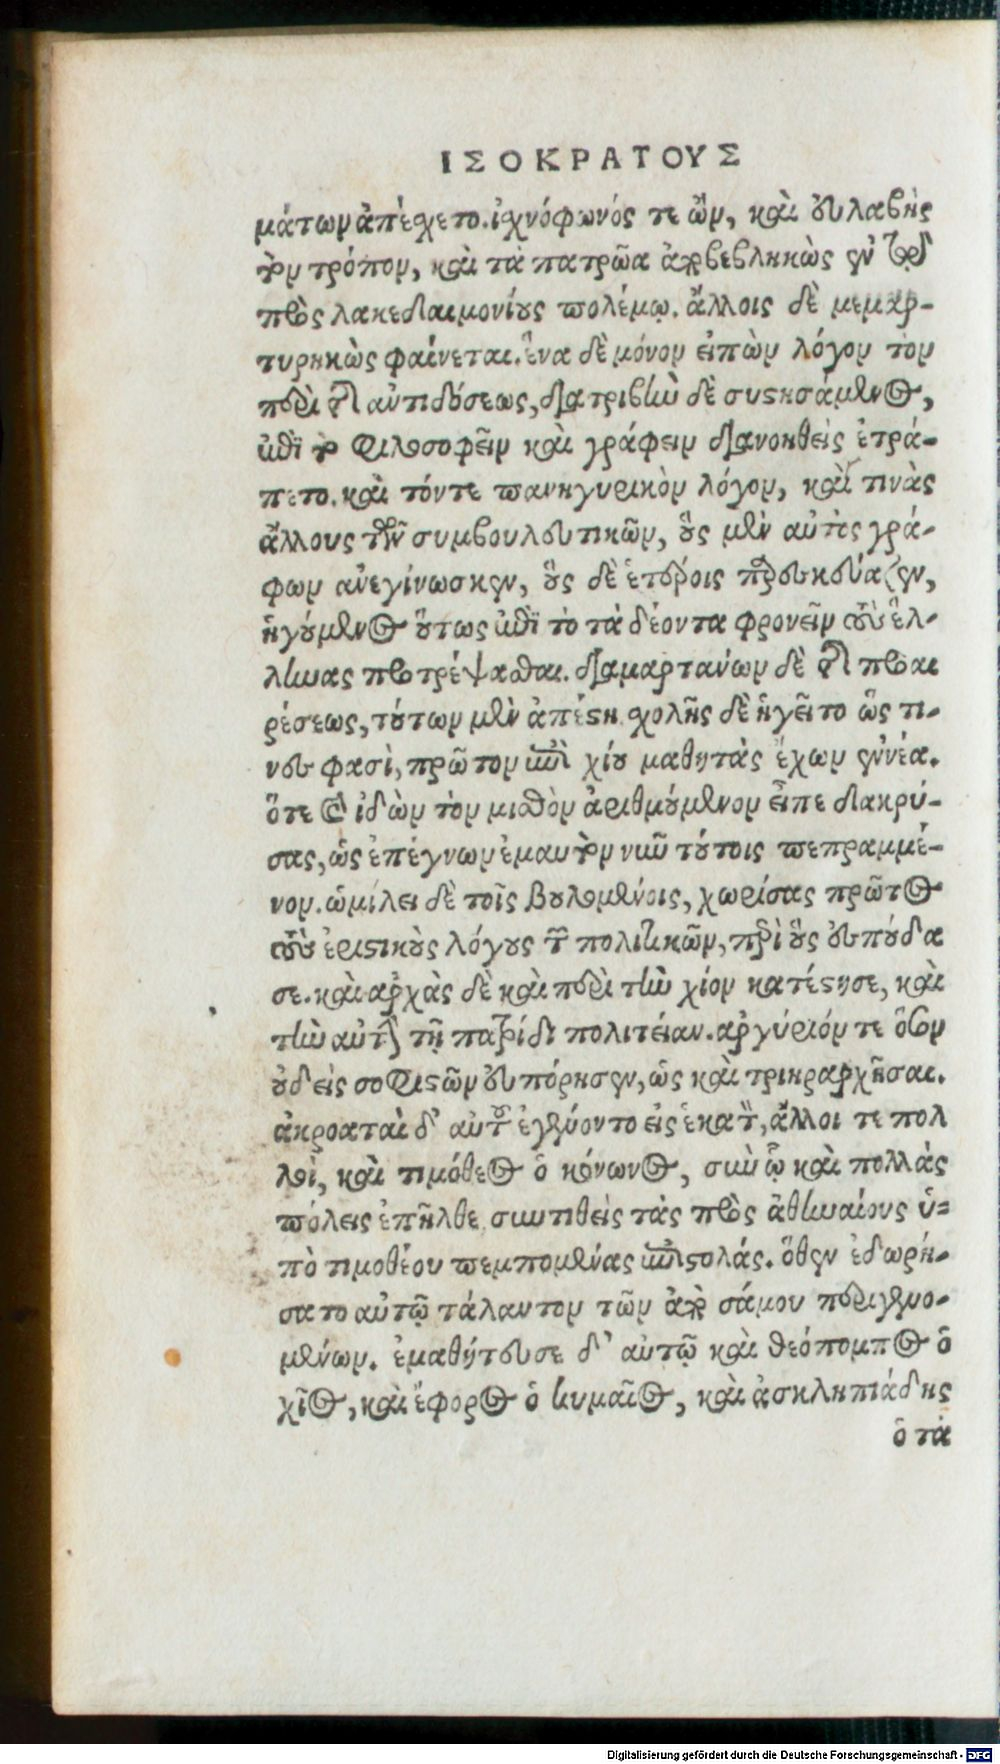 ΙΣΟΚΡΑΤΟΥΣ
μάτων ἀπέχετο. ἰχνόφωνός τε ὢν, καὶ εὐλαβὴς
τὸν τρόπον, καὶ τὰ πατρῷα ἀποβεβληκὼς ἐν τῷ
πρὸς λακεδαιμονίους πολέμῳ. ἄλλοις δὲ μεμαρ-
τυρηκὼς φαίνεται. ἕνα δὲ μόνον εἰπὼν λόγον τὸν
περὶ τῆς αὐτιδόσεως, διατριβὴν δὲ συστησάμενος,
ἐπὶ τὸ φιλοσοφεῖν καὶ γράφειν διανοηθεὶς ἐτρά-
πετο. καὶ τόντε πανηγυρικὸν λόγον, καὶ τινὰς
ἄλλους τῶν συμβουλευτικῶν, οὓς μὲν αὐτὸς γρά-
φων ἀνεγίνωσκεν, οὓς δὲ ἑτέροις παρεσκεύαζεν,
ἡγούμενος οὕτως ἐπὶ τὸ τὰ δέοντα φρονεῖν τοὺς ἕλ-
ληνας προτρέψασθαι. διαμαρτανών δὲ τῆς προαι
ρέσεως, τούτων μὲν ἀπέστη. σχολῆς δὲ ἡγεῖτο ὥς τι-
νες φασὶ, πρῶτον ἐπὶ χίου μαθητὰς ἔχων ἐννέα.
ὅτε καὶ ἰδὼν τὸν μισθὸν ἀριθμούμενον εἶπε δακρύ-
σας, ὡς ἐπέγνων ἐμαυτὸν νῦν τούτοις πεπραμμέ-
νον. ὡμίλει δὲ τοῖς βουλομένοις, χωρίσας πρῶτος
τοὺς ἐριστικοὺς λόγους τῶν πολιτικῶν, περὶ οὓς ἐσπούδα
σε. καὶ ἀρχὰς δὲ καὶ περὶ τὴν χίον κατέστησε, καὶ
τὴν αὐτὴν τῇ πατρίδι πολιτείαν. ἀργύριόν τε ὅσον
οὐδεὶς σοφιστῶν εὐπόρησεν, ὡς καὶ τριηραρχῆσαι.
ἀκροαταὶ δ' αὐτοῦ ἐγένοντο εἰς ἑκατὸν, ἄλλοι τε πολ
λοὶ, καὶ τιμόθεος ὁ κόνωνος, σὺν ᾧ καὶ πολλὰς
πόλεις ἐπῆλθε, συντιθεὶς τὰς πρὸς ἀθηναίους ὑ-
πὸ τιμοθέου πεμπομένας ἐπιστολάς. ὅθεν ἐδωρή-
σατο αὐτῷ τάλαντον τῶν ἀπὸ σάμου περιγενο-
μένων. ἐμαθήτευσε δ' αὐτῷ καὶ θεόπομπος ὁ
χῖος, καὶ ἔφορος ὁ κυμαῖος, καὶ ἀσκληπιάδης
ὁ τὰ
Digitalisierung gefördert durch die Deutsche Forschungsgemeinschaft - DFG